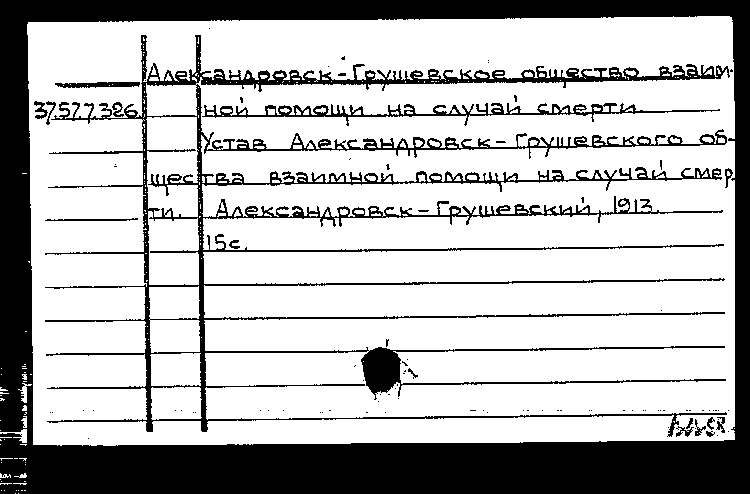 Александровск-Грушевское общество взаим-
37.57.7.386 ной помощи на случай смерти.
Устав Александровск-Грушевского об-
щества взаимной помощи на случай смер-
ти. Александровск-Грушевский, 1913.
15с.